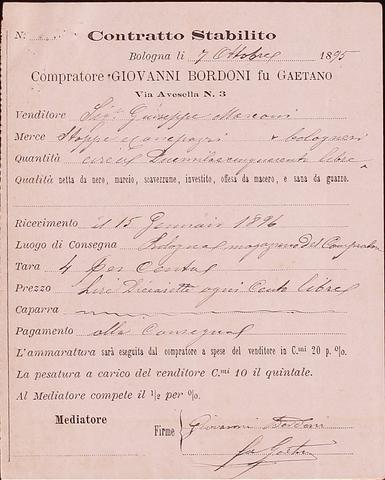 N:
Contratto Stabilito
Bologna li 7 Ottobre 1895
Compratore GIOVANNI BORDONI fu GAETANO
Via Avesella N. 3
Venditore Sigr Giuseppe Marconi
Merce Stoppe canepazzi e bolognesi
Quantità circa Duemilacinquecento libre
Qualità netta da nero, marcio, scavezzume, investito, offesa da macero, e sana da guazzo.
Ricevimento il 15 Gennaio 1896
Luogo di Consegna Bologna magazzeno del Compratore
Tara 4 per Cento
Prezzo Lire Diciasette ogni Cento libre
Caparra
Pagamento alla Consegna
L'ammaratura sarà eseguita dal compratore a spese del venditore in C.mi 20 p. %.
La pesatura a carico del venditore C.mi 10 il quintale.
Al Mediatore compete il 1/2 per %.
Mediatore
Firme Giovanni Bordoni
fu Gaetano